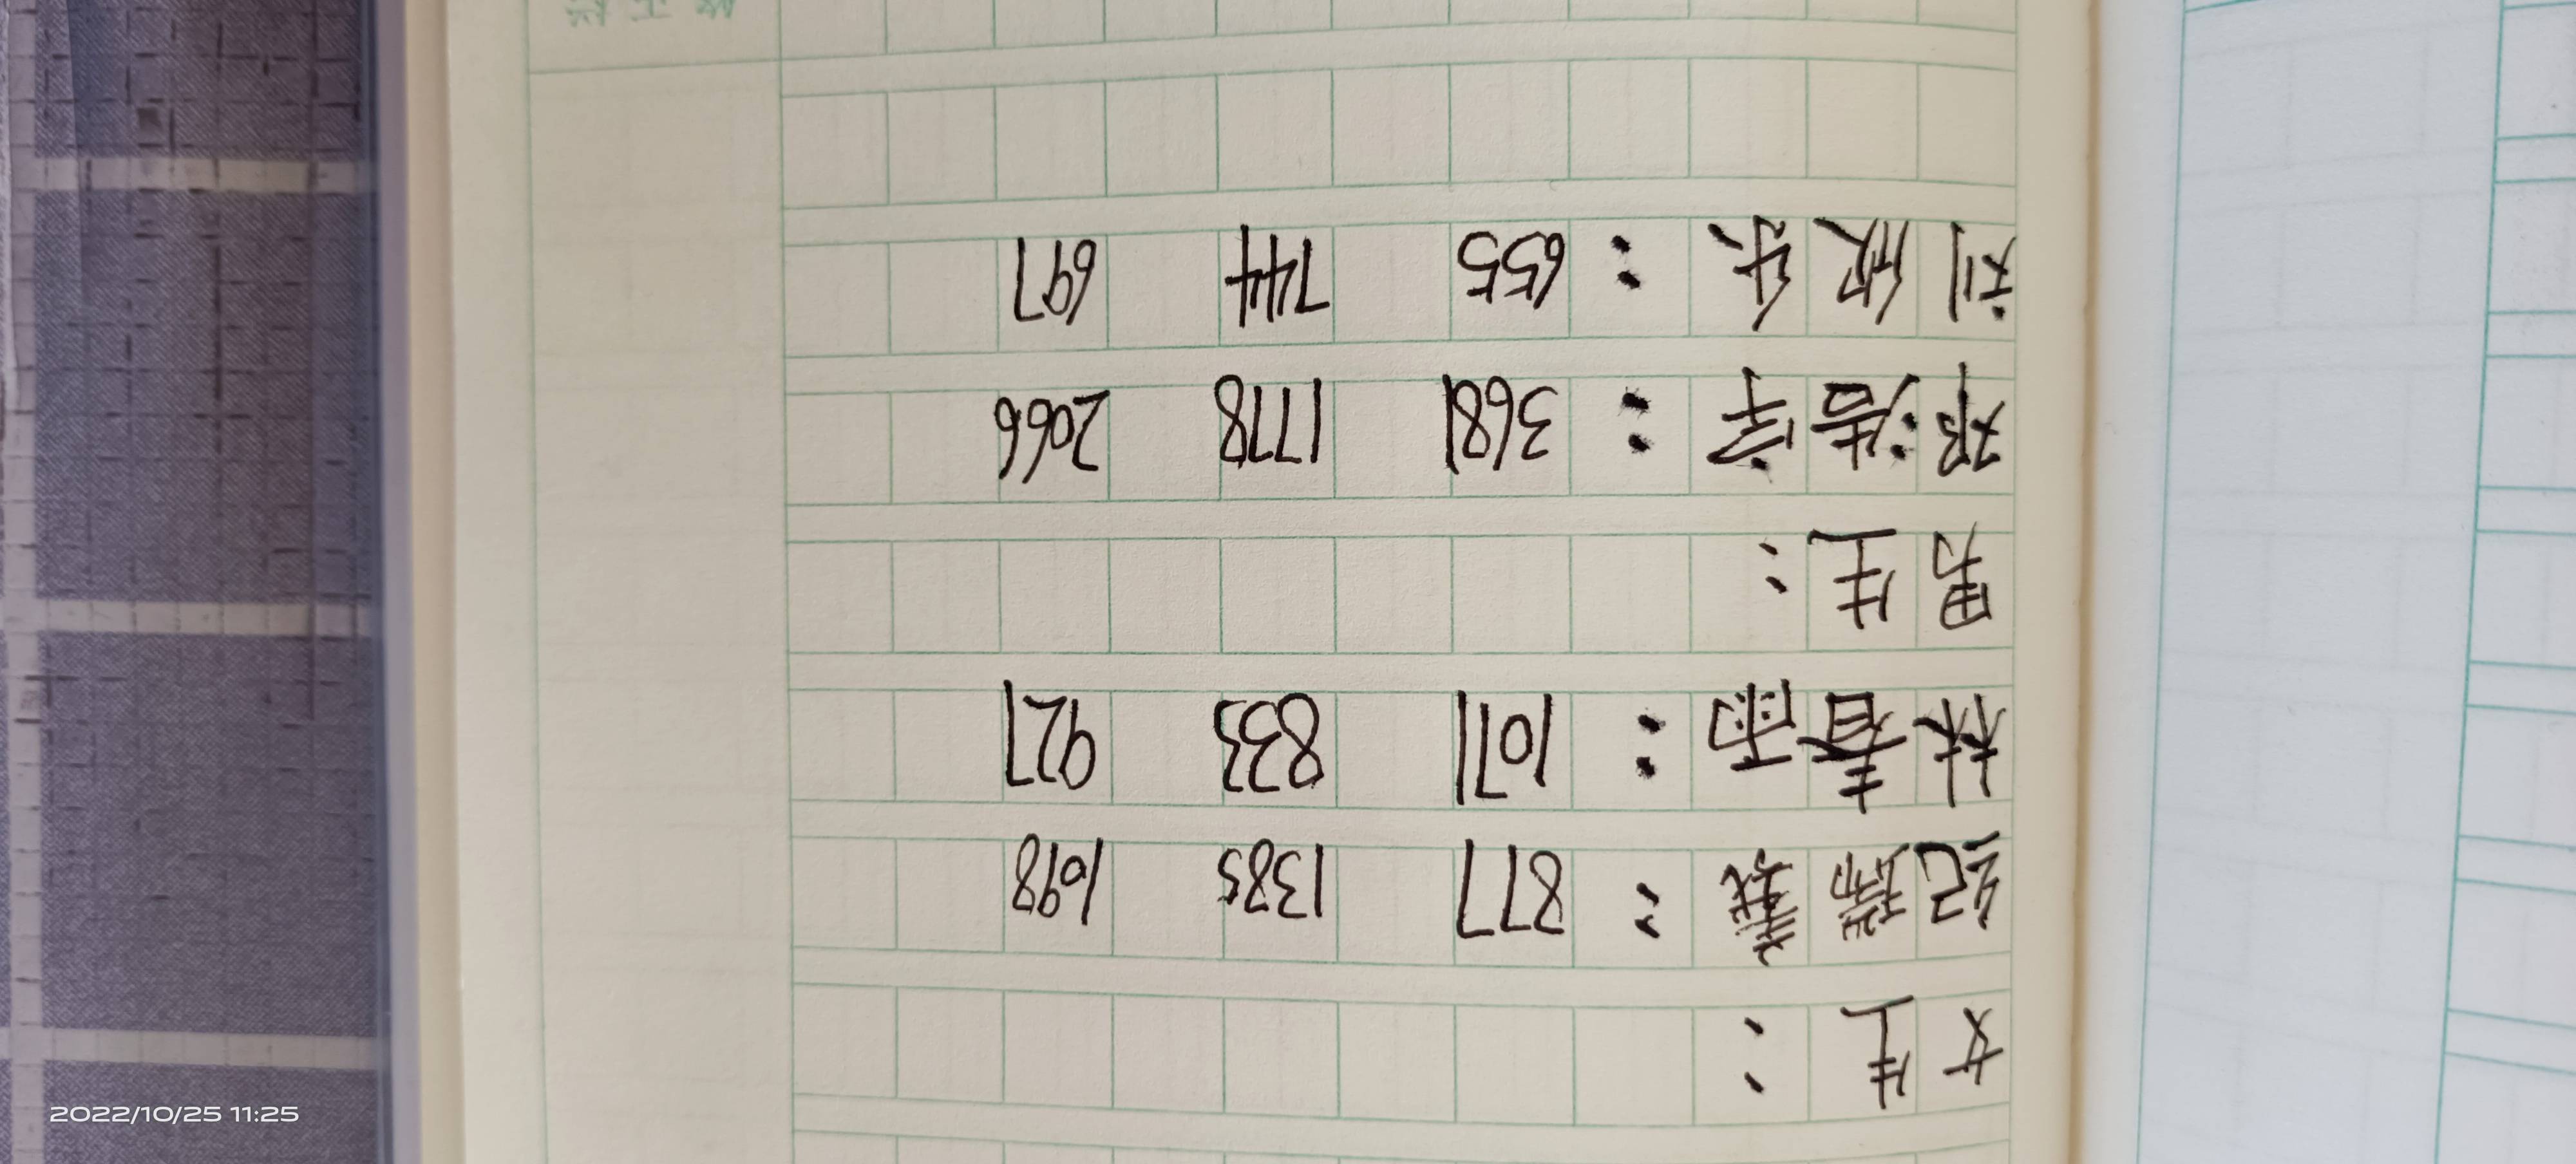 女生：
纪：877 1385 1698
林春雨：1071 833 927
男生：
浩宇：3681 1778 2066
刘欣乐：655 744 697
2022/10/25 11:25